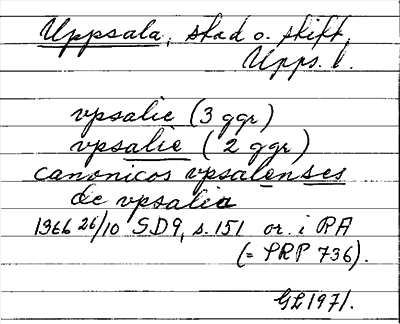 Uppsala, stad o. stift,
Upps. l.
vpsalie (3 ggr)
vpsalie (2 ggr)
canonicos vpsalenses
de vpsalia
1366 26/10 SD9, s. 151 or. i RA
(= PRP 736).
GL 1971.